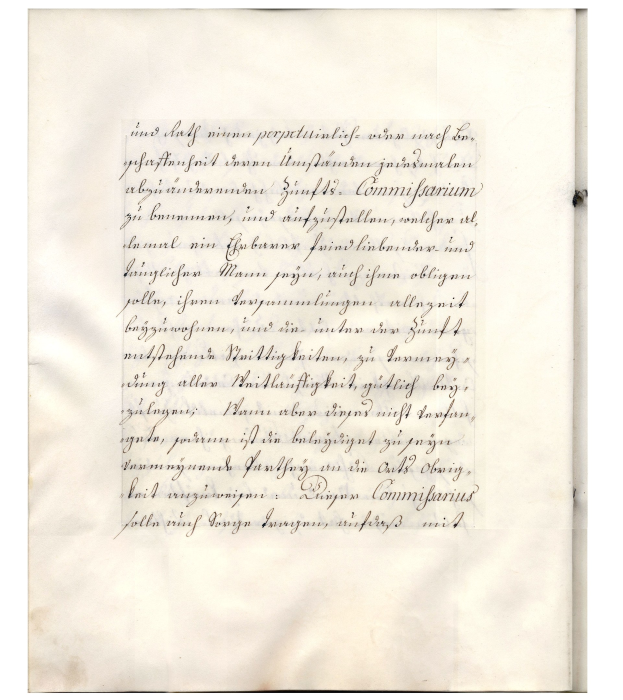 und Rath einen perpetuirlich- oder nach Be-
schaffenheit deren Umständen jedesmalen
abzuänderenden Zunfts- Commißarium
zu benennen, und aufzustellen, welcher al-
lemal ein Ehrbarer friedliebender- und
tauglicher Mann seyn, auch ihme obligen
solle, ihren Versammlungen allezeit
beyzuwohnen, und die unter der Zunft
entstehende Strittigkeiten, zu Vermey-
dung aller Weitläuffigkeit, gütlich bey-
zulegen; Wann aber dieses nicht Verfan-
gete, sodann ist die beleydiget zu seyn
Vermeynende Parthey an die Orts Obrig-
keit anzuweisen: Dieser Commißarius
solle auch Sorge tragen, aufdaß mit